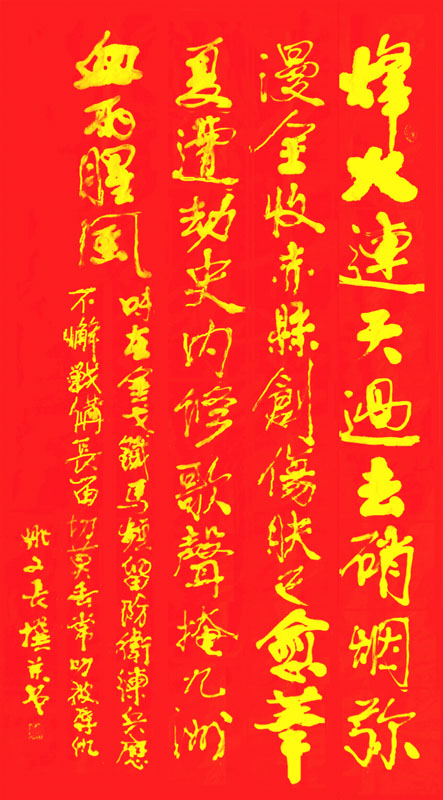 烽火連天過去硝烟弥
漫全收赤縣創傷肤已愈華
夏遭劫史内修歌聲掩九洲
血雨腥風
在金戈鐵馬頻留防衛練兵應
不懈戰備長留切莫丢常被辱仇
姚文長撰并書